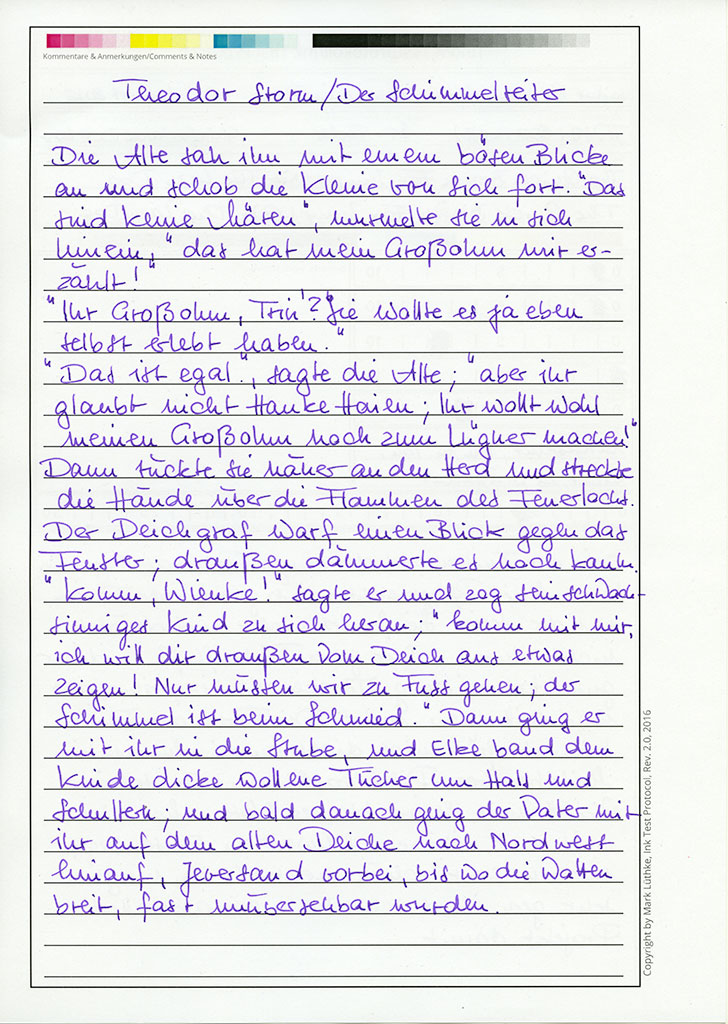 Kommentare & Anmerkungen/Comments & Notes
Theodor Storm/Der Schimmelreiter
Die Alte sah ihn mit einem bösen Blicke
an und schob die Kleine von sich fort. "Das
sind keine Mären", murmelte sie in sich
hinein, "das hat mein Großohm mir er-
zählt!"
"Ihr Großohm, Trin'? Sie wollte es ja eben
selbst erlebt haben."
"Das ist egal.", sagte die Alte; "aber ihr
glaubt nicht Hauke Haien; Ihr wollt wohl
meinen Großohm noch zum Lügner machen!"
Dann rückte sie näher an den Herd und streckte
die Hände über die Flammen des Feuerlochs.
Der Deichgraf warf einen Blick gegen das
Fenster; draußen dämmerte es noch kaum.
"Komm, Wienke!" sagte er und zog sein schwach-
sinniges Kind zu sich heran; "komm mit mir,
ich will dir draußen vom Deich aus etwas
zeigen! Nur müssen wir zu Fuss gehen; der
Schimmel ist beim Schmied." Dann ging er
mit ihr in die Stube, und Elke band dem
Kinde dicke wollene Tücher um Hals und
Schultern; und bald danach ging der Vater mit
ihr auf dem alten Deiche nach Nordwest
hinauf, Jeversand vorbei, bis wo die Watten
breit, fast unübersehbar wurden.
Copyright by Mark Lüthke, Ink Test Protocol, Rev. 2.0, 2016